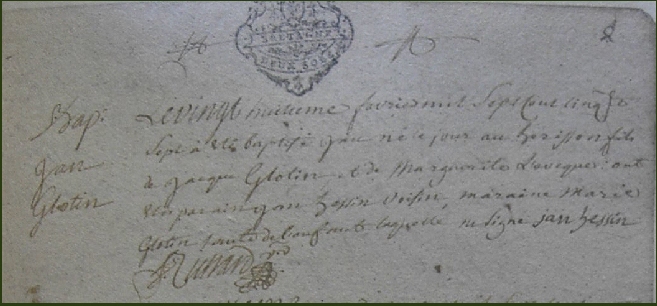 BRETAGNE
DEUX SOLS
Bap:
Jan
Glotin
Le vingt huitieme fevrier mil Sept Cent Cinqte
Sept a ete baptisé Jan né le jour au herisson fils
de Jacque Glotin et de Marguerite Leveque: ont
ete parain jan hessin voisin, maraine Marie
Glotin tante de l'enfant laquelle ne signe jan hessin